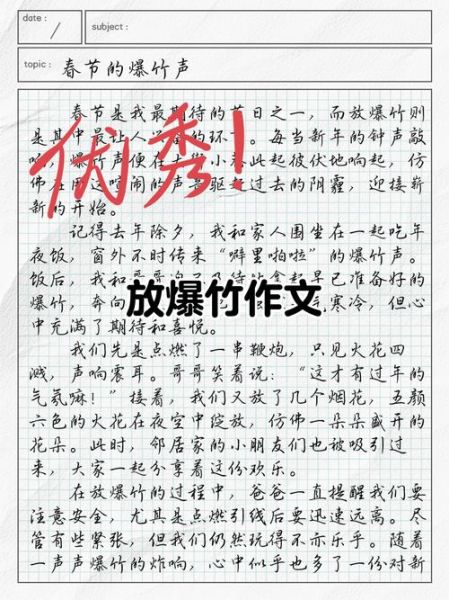 date :
subject :
topic : 春节的爆竹声
春节是我最期待的节日之一，而放爆竹则
是其中最让人的环节。每当新年的钟声敲
响，爆竹声便在大街小巷此起彼伏地响起，仿
佛在用这喧闹的声音驱走过去的阴霾，迎接崭
新的开始。
优秀！
记得去年除夕，我和家人围坐在一起吃年
夜饭，窗外不时传来“噼里啪啦”的爆竹声。
饭后，我和哥哥迫不及待地拿起早已准备好的
爆竹，奔向寒冷，但心
放爆竹作文
中充满了期待和喜悦。
我们先是点燃了一串鞭炮，只见火花四
溅，声响震耳。哥哥笑着说：“这才有过年的
气氛嘛！”接着，我们又放了几个烟花，五颜
六色的火花在夜空中绽放，仿佛一朵朵盛开的
花朵。此时，邻居家的小朋友们也被吸引过
来，大家一起分享着这份欢乐。
在放爆竹的过程中，爸爸一直提醒我们要
注意安全，尤其是点燃引线后要迅速远离。尽
管有些紧张，但我们仍然玩得不亦乐乎。随着
一声声爆竹的炸响，心中似乎也多了一份对新